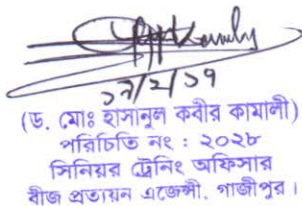 ১৭/২/১৭
(ড. মোঃ হাসানুল কবীর কামালী)
পরিচিতি নং : ২০২৮
সিনিয়র ট্রেনিং অফিসার
বীজ প্রত্যয়ন এজেন্সী, গাজীপুর।